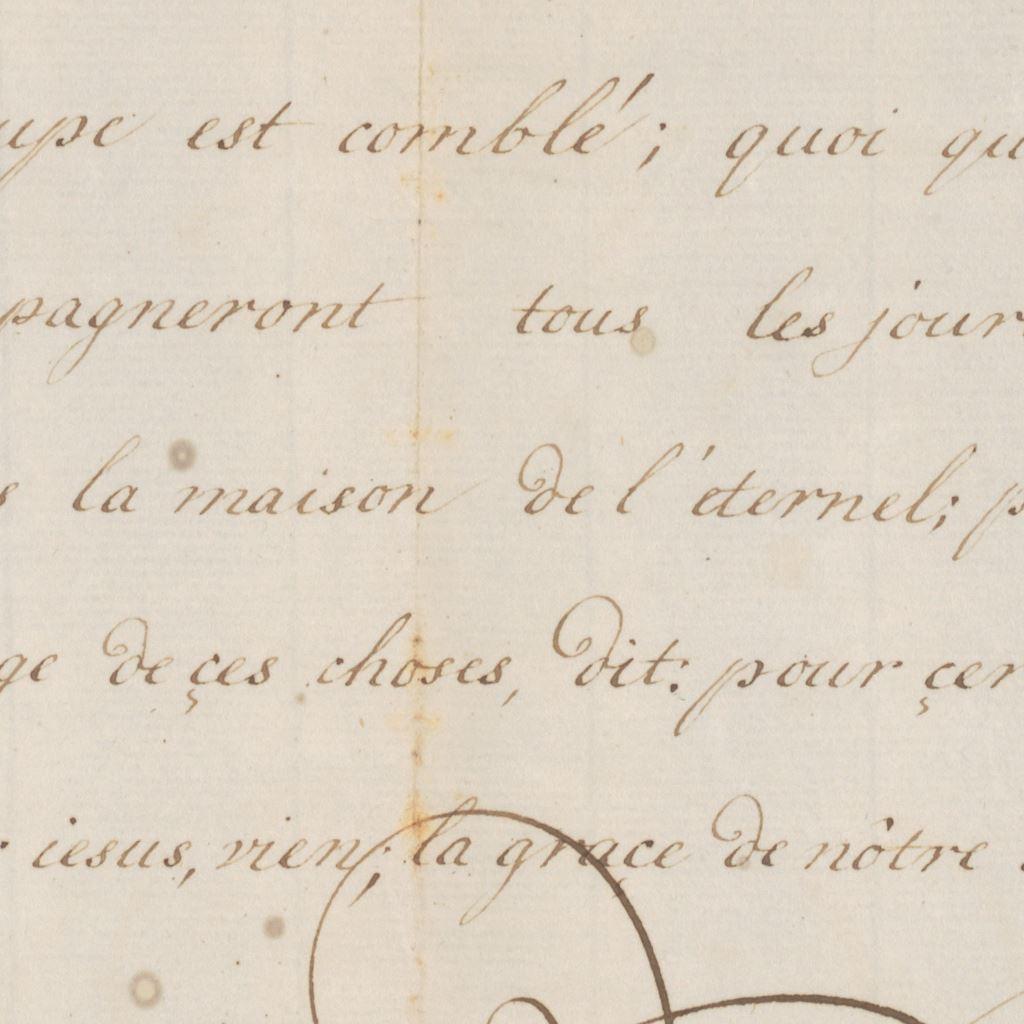 upe est comblé; quoi qu
pagneront tous les jours
s la maison de l'éternel; p
ge de çes choses, dit: pour çer
iesus, vien; la graçe de nôtre